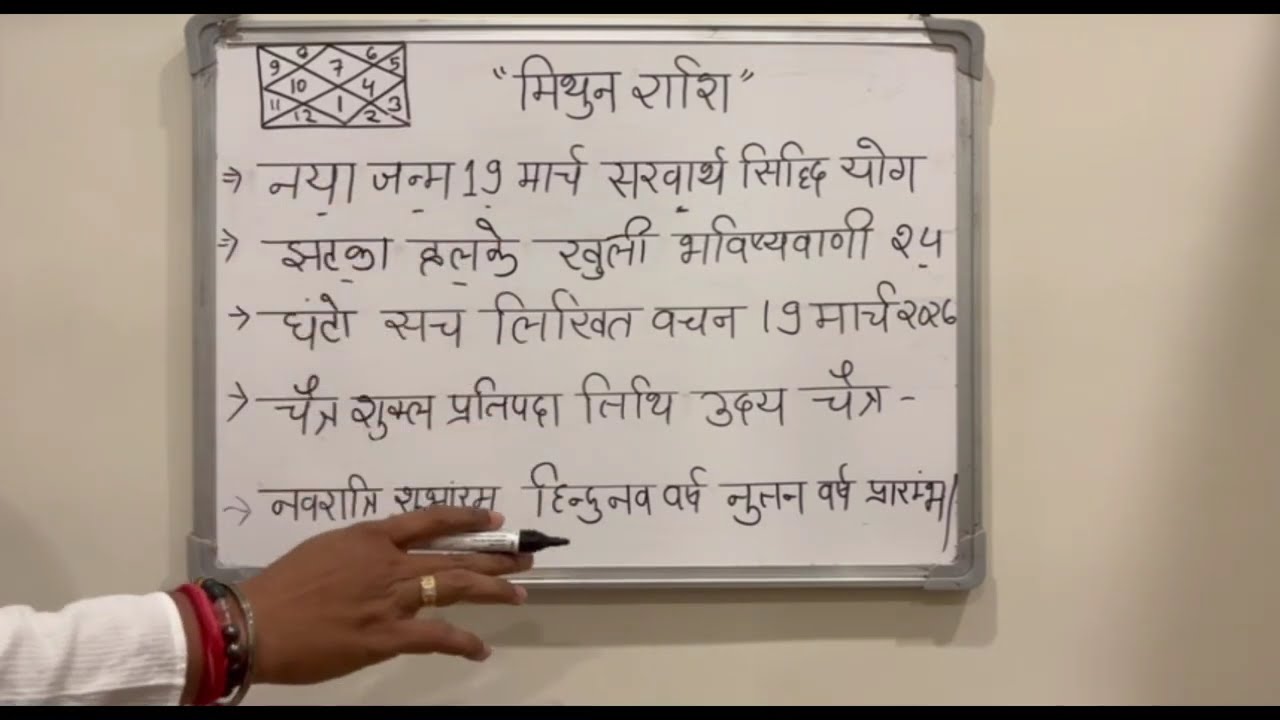 8 6
9 7 5
10 4
11 1 3
12 2
"मिथुन राशि"
⇒ नया जन्म 19 मार्च सरवार्थ सिद्धि योग
⇒ झटका हलके खुली भविष्यवाणी २५
→ घंटो सच लिखित वचन 19 मार्च २०२६
→ चैत्र शुक्ल प्रतिपदा तिथि उदय चैत्र -
→ नवरात्रि शुभांरम हिन्दु नव वर्ष नुतन वर्ष प्रारम्भ/